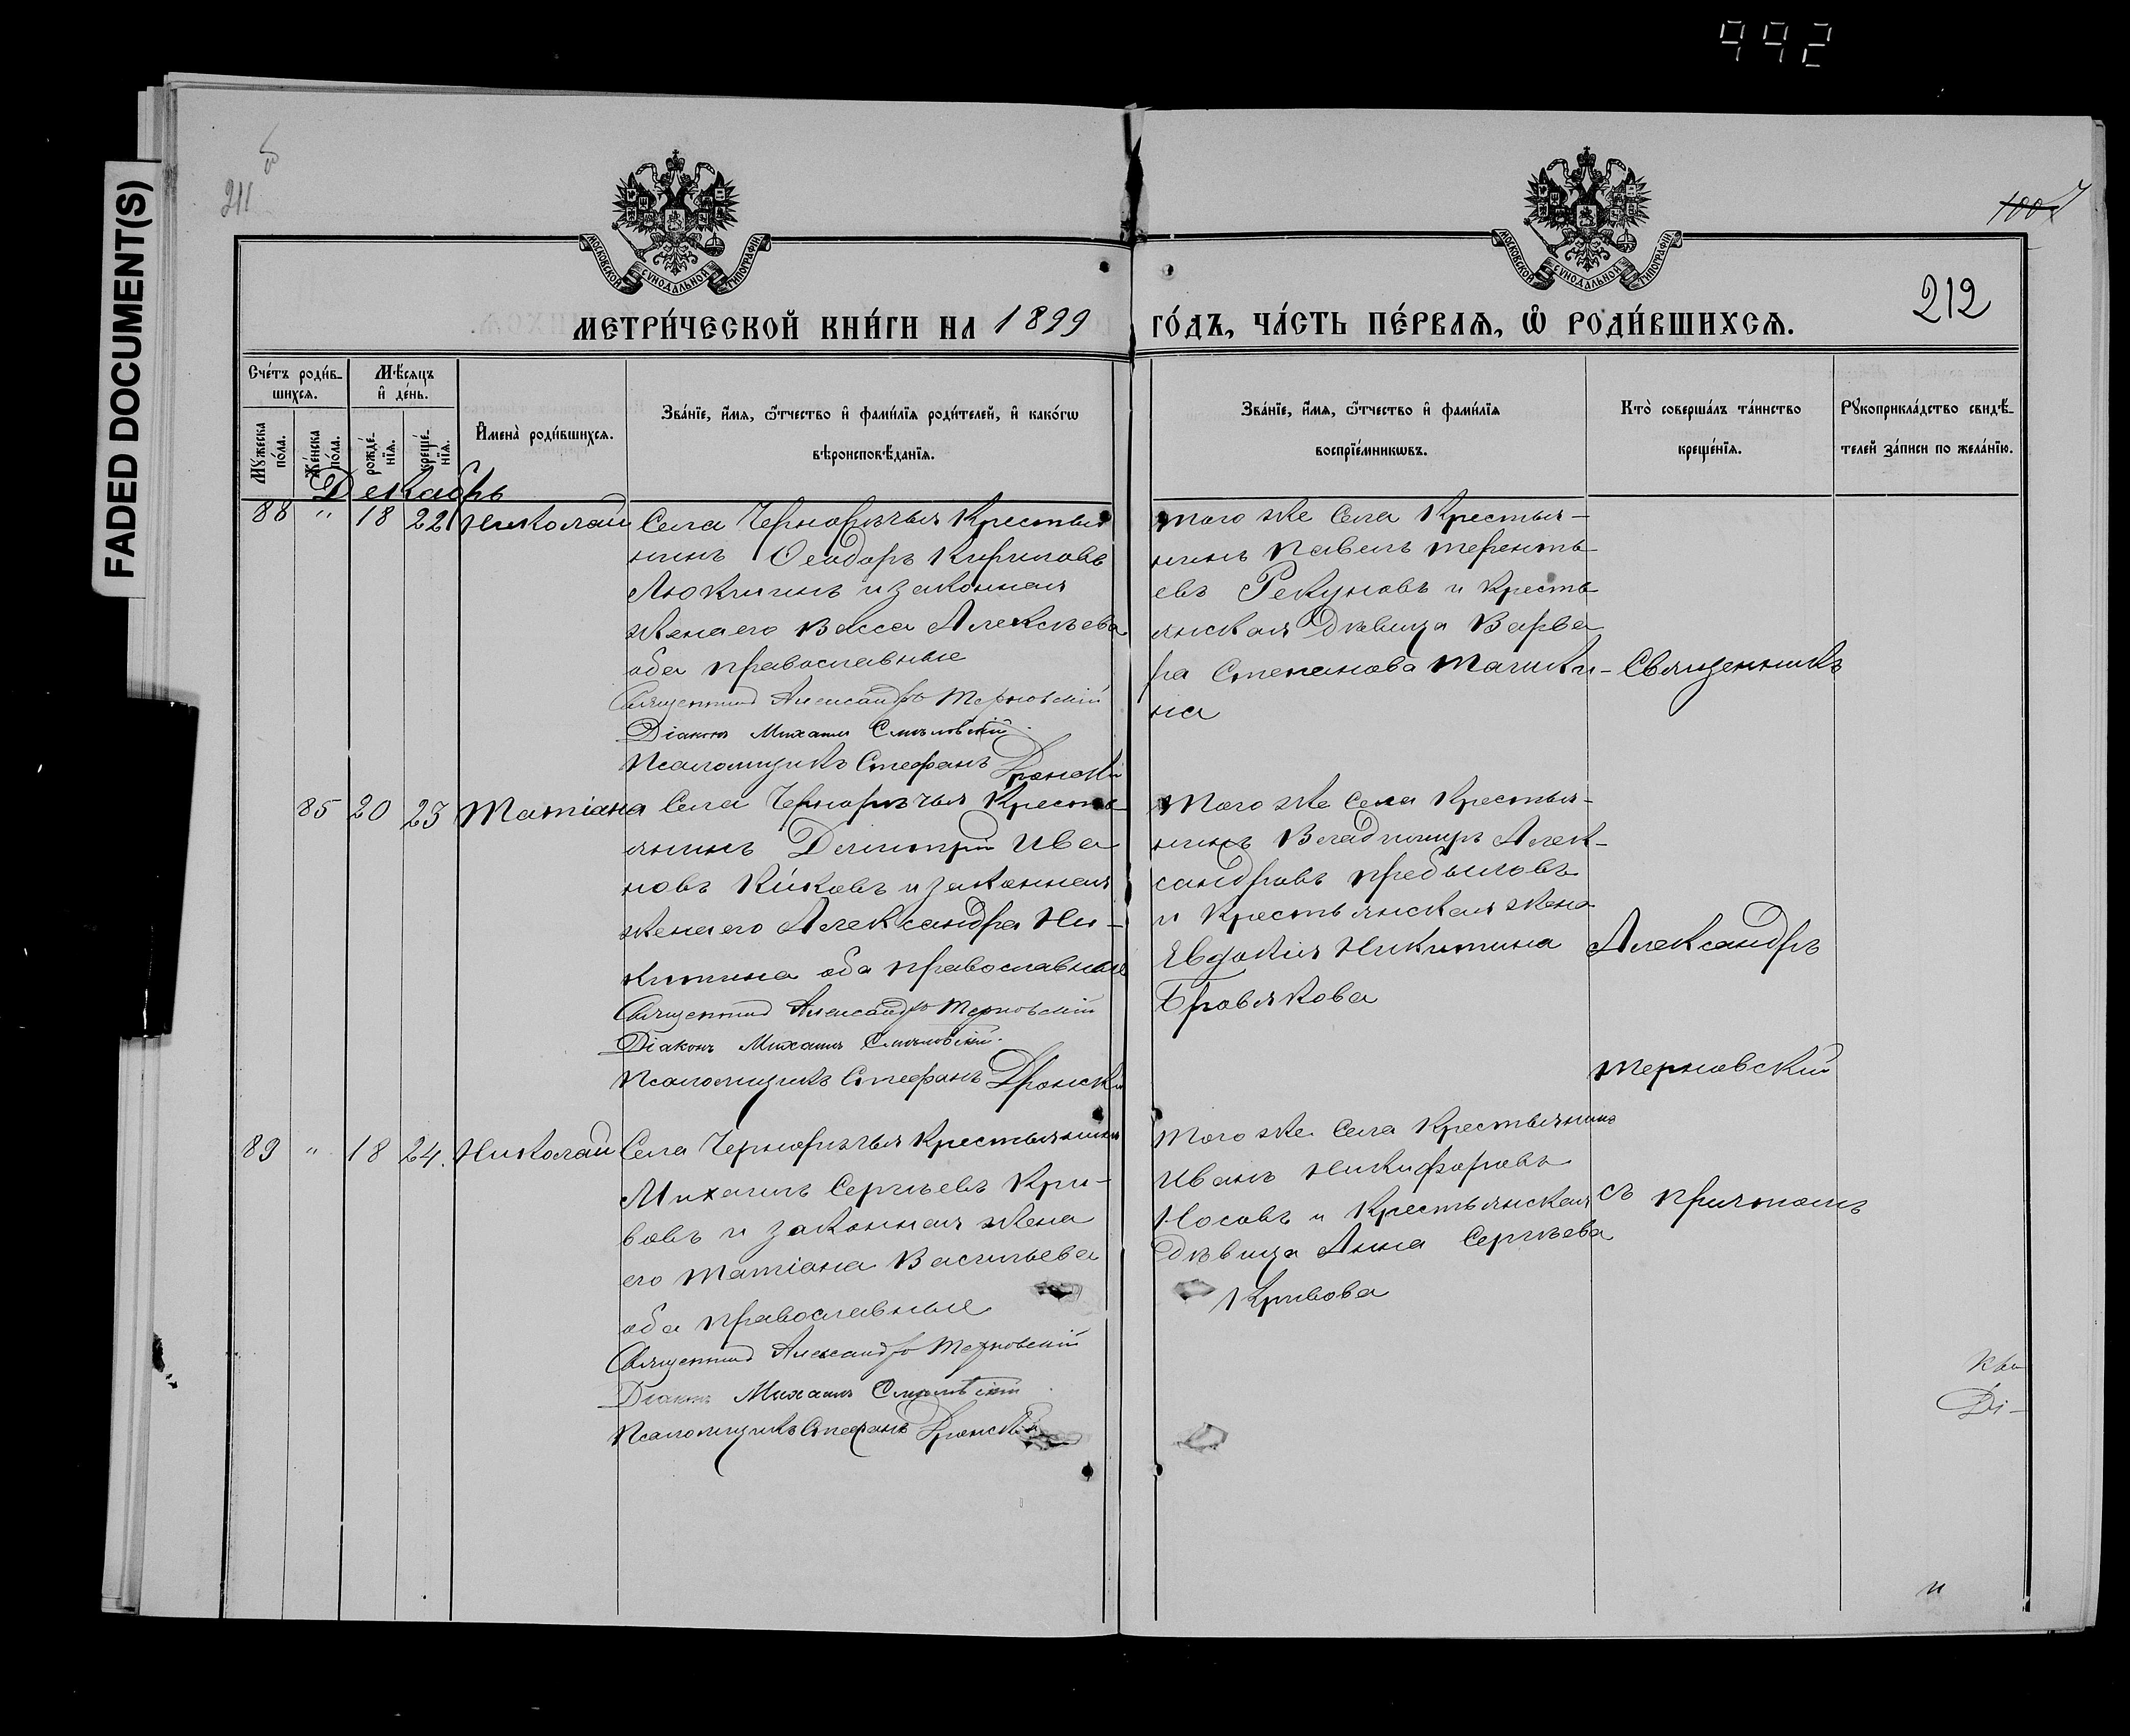 992
FADED DOCUMENT(S)
211
МОСКОВСКОЙ СѴНОДАЛЬНОЙ ТИПОГРАФІИ.
МОСКОВСКОЙ СѴНОДАЛЬНОЙ ТИПОГРАФІИ.
212
МЕТРИ́ЧЕСКОЙ КНИ́ГИ НА 1899
ГО́ДЪ, ЧА́СТЬ ПЕ́РВАѦ, Ѽ РОДИ́ВШИХСѦ.
Сче́тъ роди́в-
шихсѧ.
Мꙋ́жеска
по́ла.
Же́нска
по́ла.
Мѣ́сѧцъ
и҆ де́нь.
рожде́-
нїѧ.
креще́-
нїѧ.
И҆мена̀ роди́вшихсѧ.
Зва́нїе, и҆́мѧ, ѻ҆́тчество и҆ фами́лїѧ роди́телей, и҆ како́гѡ
вѣроисповѣ́данїѧ.
Зва́нїе, и҆́мѧ, ѻ҆́тчество и҆ фами́лїѧ
воспрїе́мникѡвъ.
Кто̀ соверша́лъ та́инство
креще́нїѧ.
Рꙋкоприкла́дство свидѣ́-
телей за́писи по жела́нїю.
Декабрь
88 " 18 22 Николай
Села Чернорѣчья Крестья
нинъ Ѳеодоръ Кириловъ
Люкшинъ и законная
жена его Васса Алексѣева
оба православные
Священникъ Александръ Терновскій
Діаконъ Михаилъ Смѣловскій.
Псаломщикъ Стефанъ Дронскій
того же Села Крестья-
нинъ Павелъ Теренть
евъ Рекуновъ и Кресть
янская дѣвица Варва
ра Степанова
на
85 20 23 Татіана
Села Чернорѣчья Кресть-
янинъ Димитрій Ива
новъ Киковъ и законная
жена его Александра Ни-
китина оба православные
Священникъ Александръ Терновскій
Діаконъ Михаилъ Смѣловскій.
Псаломщикъ Стефанъ Дронскій
Того же Села Крестья-
нинъ Владимиръ Алек-
сандровъ Пребыловъ
и Крестьянская жена
Евдокія Никитина
Бровякова
89 " 18 24. Николай
Села Чернорѣчья Крестьянинъ
Михаилъ Сергѣевъ Кри-
вовъ и законная жена
его Татіана Васильева
оба православные
Священникъ Александръ Терновскій
Діаконъ Михаилъ Смѣловскій
Псаломщикъ Стефанъ Дронскій
Того же Села Крестьянинъ
Иванъ Никифоровъ
Носовъ и Крестьянская
дѣвица Анна Сергѣева
Кривова
Священникъ
Александръ
Терновскій
съ причтомъ
Ді-
и